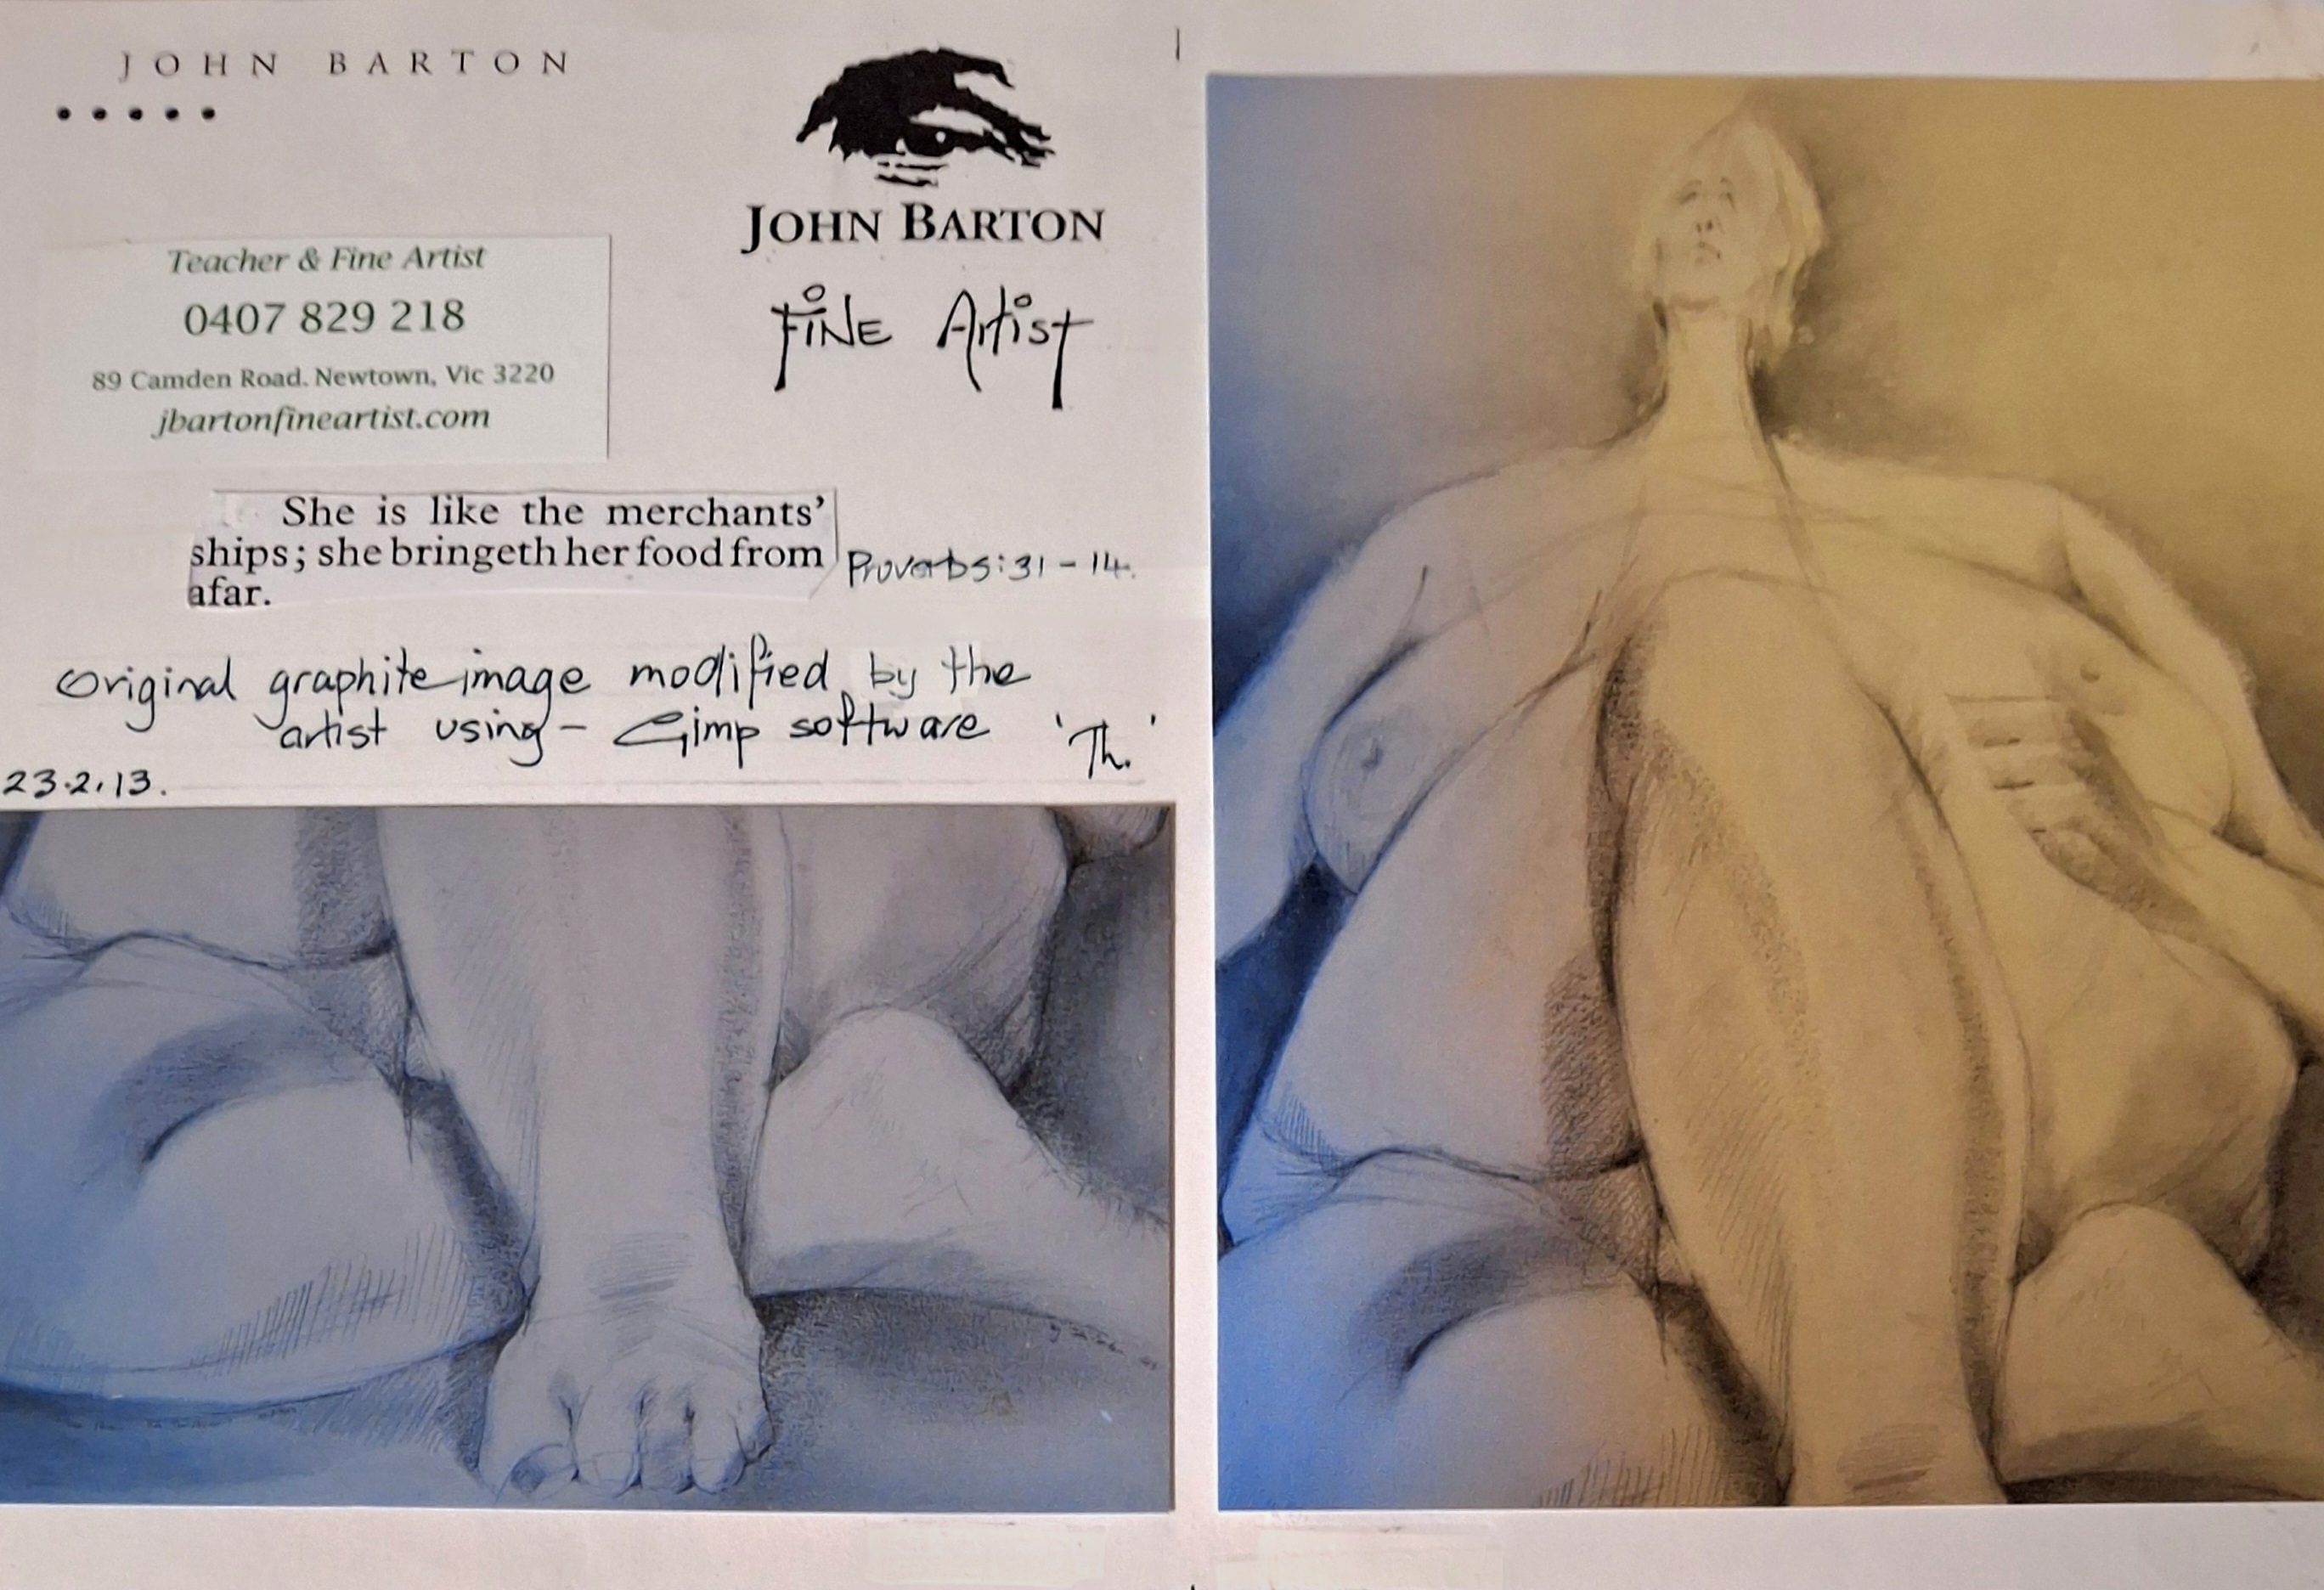 JOHN BARTON
JOHN BARTON
FINE Artist
Teacher & Fine Artist
0407 829 218
89 Camden Road. Newtown, Vic 3220
jbartonfineartist.com
She is like the merchants'
ships; she bringeth her food from
afar.
Proverbs: 31 - 14.
Original graphite image modified by the
artist using - Gimp software 'Th.'
23.2.13.